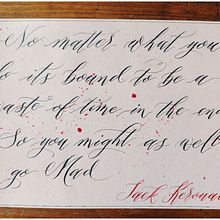 No matter what you
do its bound to be a
waste of time in the end
So you might as well
go Mad
Jack Kerouac